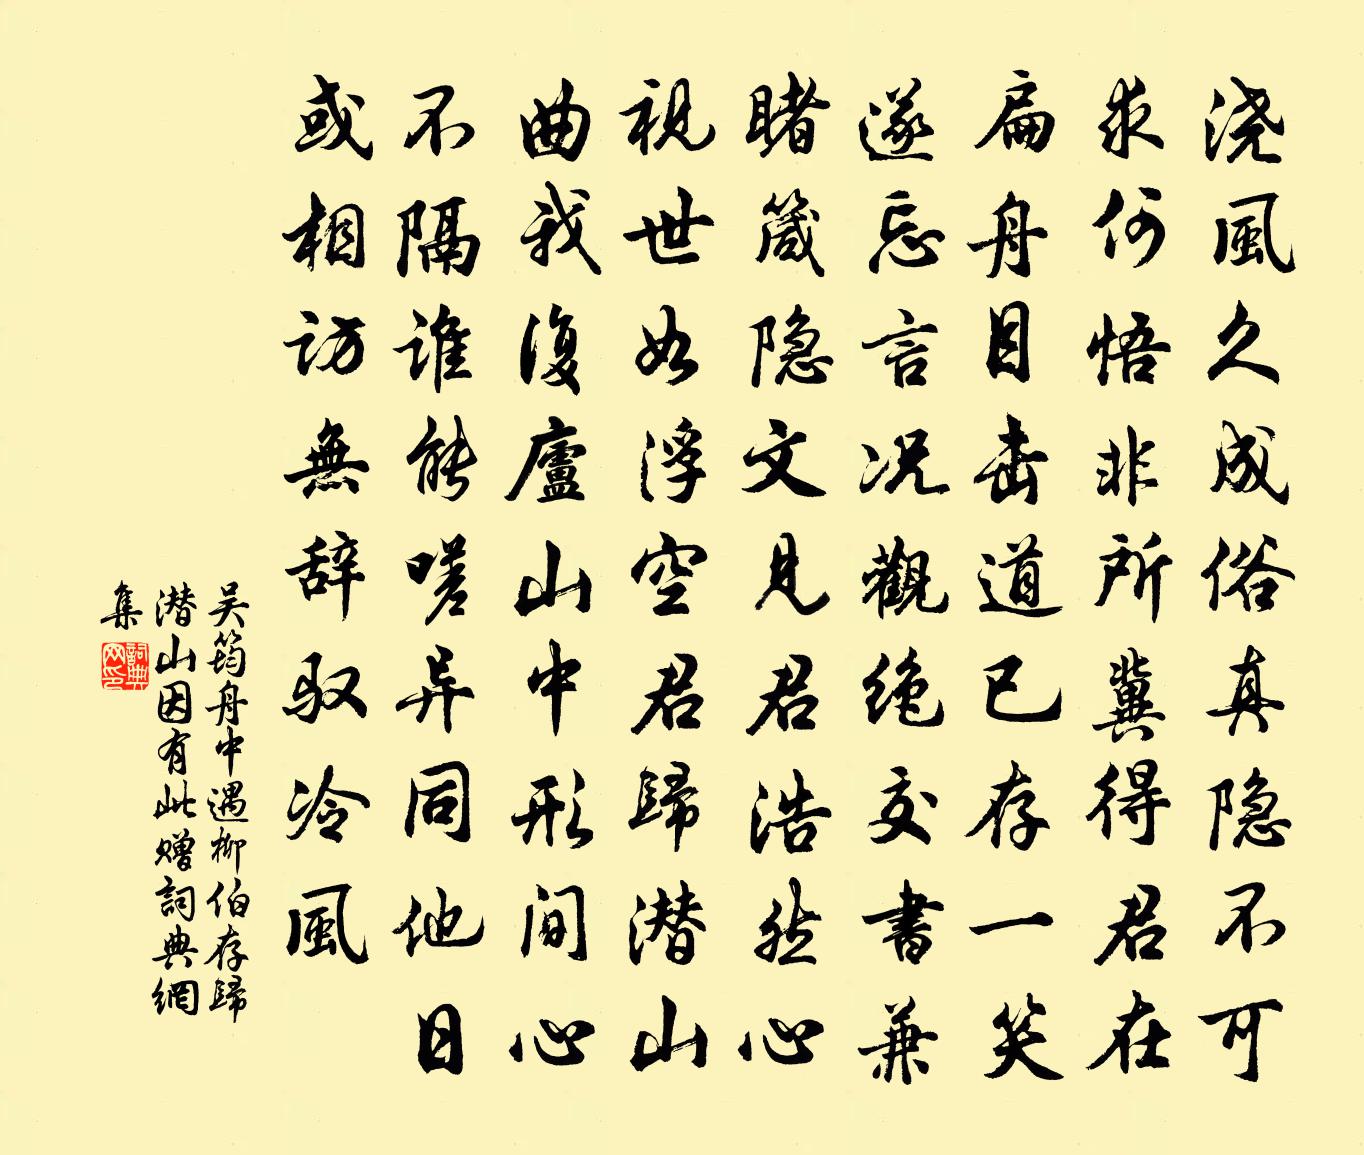 浇風久成俗真隐不可
求何悟非所冀得君在
扁舟目击道已存一笑
遂忘言况觀绝交書兼
睹箴隐文見君浩然心
視世如浮空君歸潜山
曲我復廬山中形间心
不隔谁能嗟异同他日
或相访無辞驭冷風
吴筠舟中遇柳伯存歸
潜山因有此赠詞典網
集
詞典网印